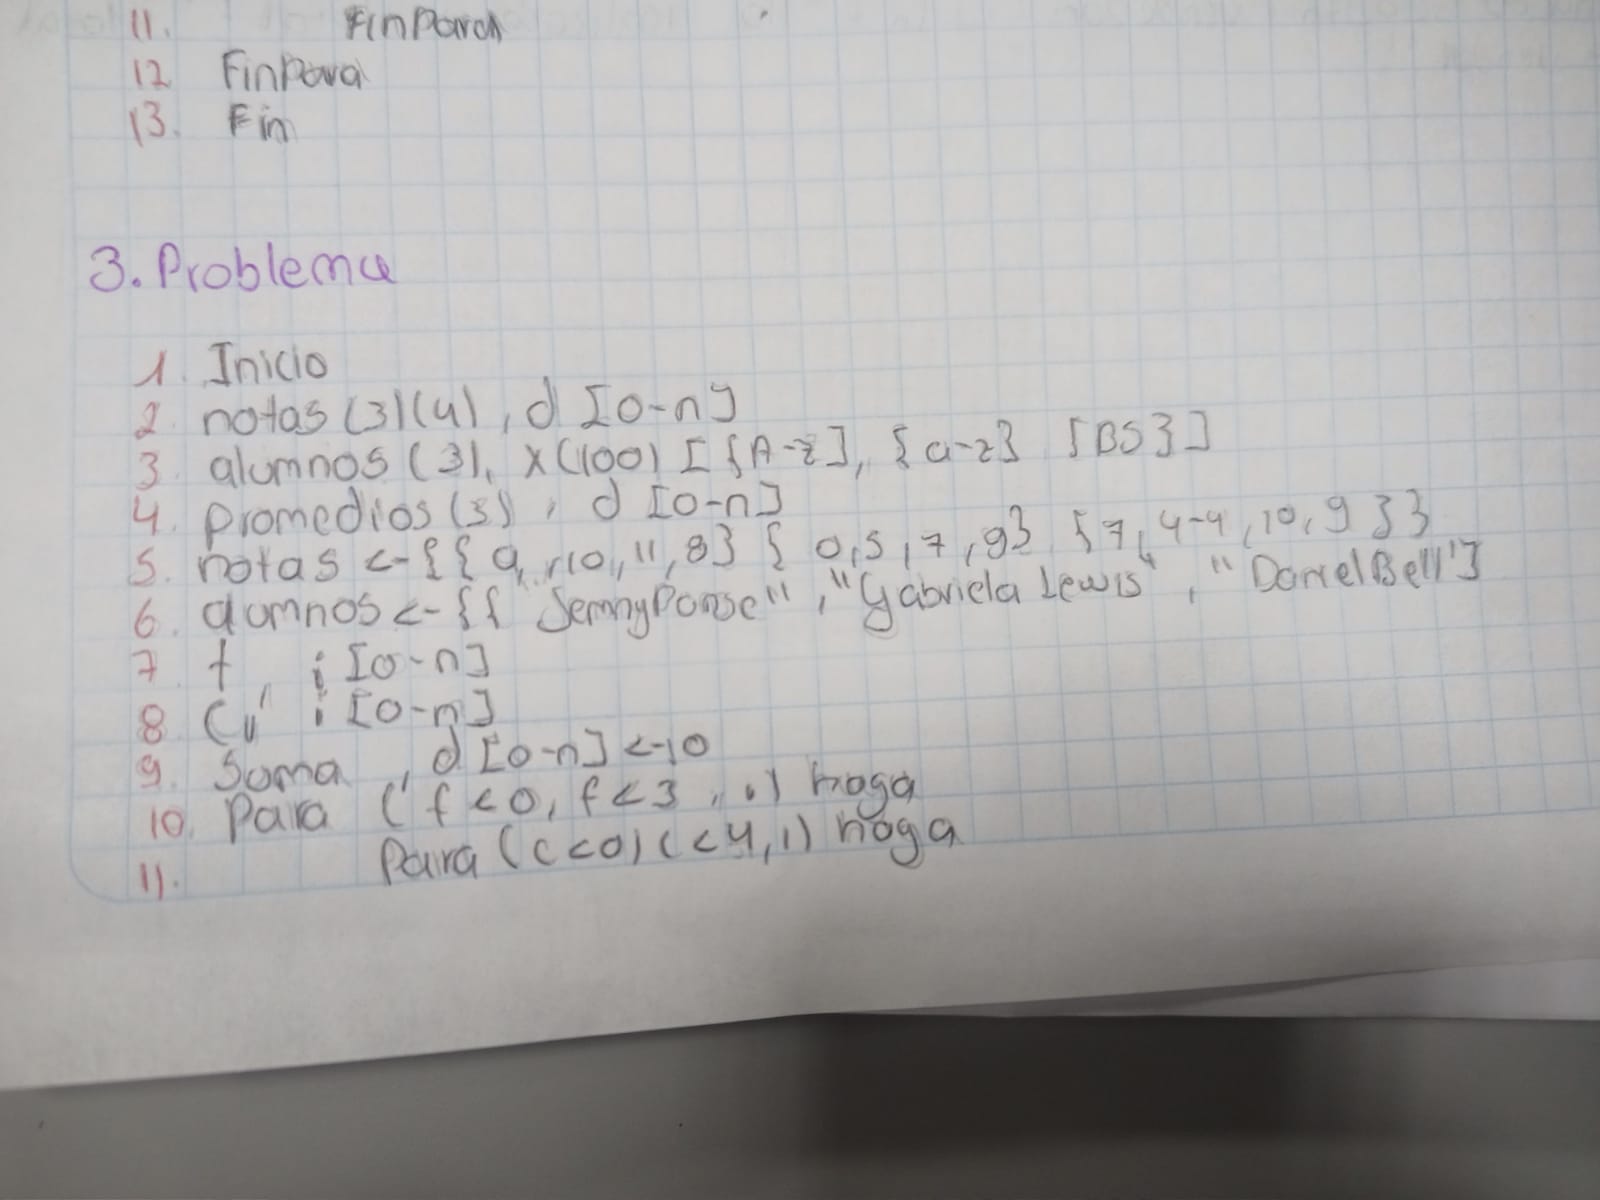 11. FinPara
12 FinPara
13. Fin
3. Problema
1. Inicio
2. notas (3)(4), d [0-n]
3 alumnos (3), x(100) [{A-z], {a-z} [BS}]
4. promedios(3), d [0-n]
5. notas <-{{ 9, 10, 11, 8} { 0,5,7,9} {7, 4-4, 10, 9 }}
6. alumnos <-{{ "Jenny Ponse", "Gabriela Lewis", "Daniel Bell"}
7 f, i [0-n]
8 i [0-n]
9. Suma, d [0-n] <-10
10. Para (f<0, f<3, .) haga
11. Para (c<0) (<4,1) haga